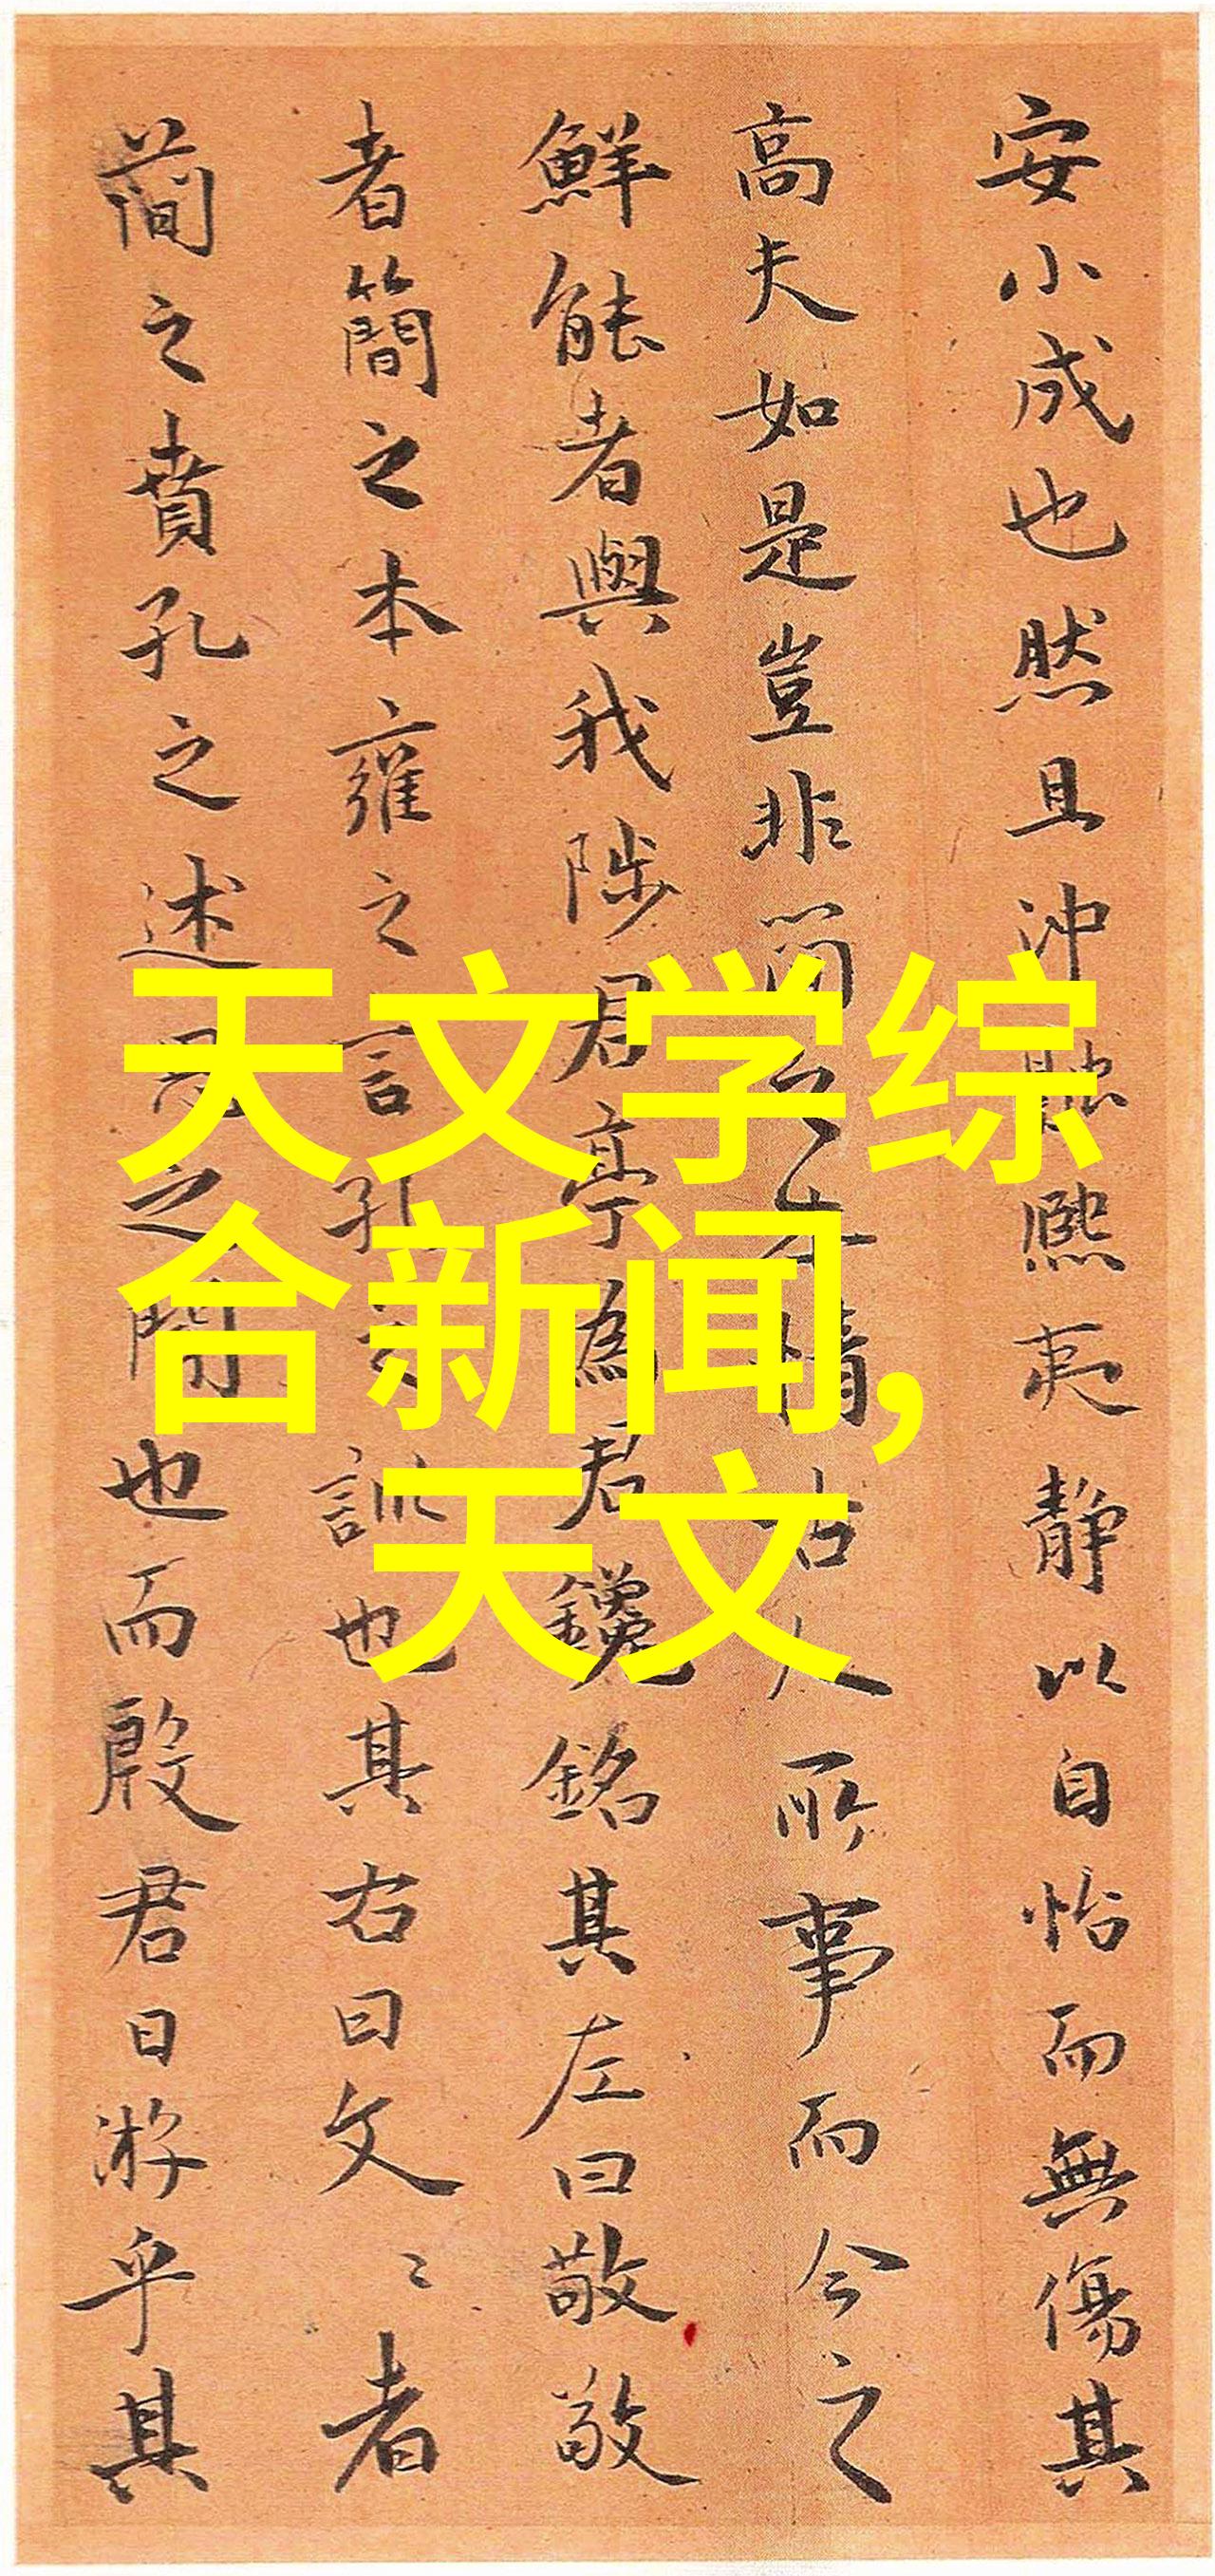 安小成也然且沖融熙夷靜以自怡而無傷其
高夫如是豈非簡之本情古人所事而今之
鮮能者與我陟君亭為君鑱銘其左曰敬敬
者簡之本雍之言孔之訓也其右曰文〻者
蕳之賁孔之述思之闇也而殷君日游乎其
天文学综
合新闻,
天文